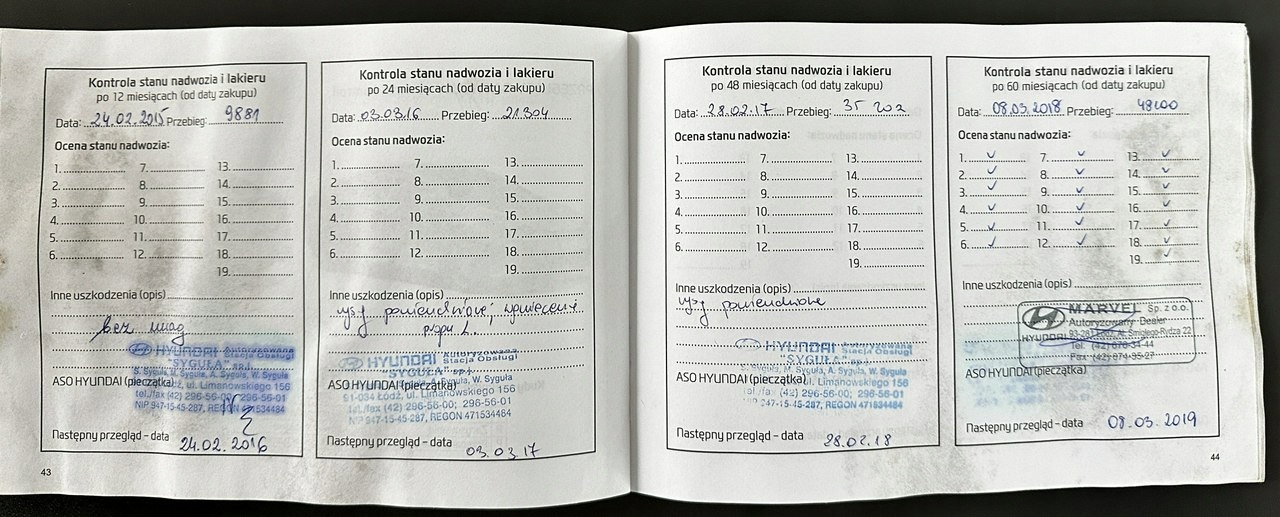 Kontrola stanu nadwozia i lakieru
po 12 miesiącach (od daty zakupu)
Data: 24.02.2015 Przebieg: 9881
Ocena stanu nadwozia:
1. 7. 13.
2. 8. 14.
3. 9. 15.
4. 10. 16.
5. 11. 17.
6. 12. 18.
19.
Inne uszkodzenia (opis)
bez uwag
HYUNDAI Autoryzowana
Stacja Obsługi
"SYGUŁA" sp.j.
S. Syguła, M. Syguła, A. Syguła, W. Syguła
ul. Limanowskiego 156
ASO HYUNDAI (pieczątka)
tel./fax (42) 296-56-00; 296-56-01
NIP 947-15-45-287, REGON 471534484
Następny przegląd – data 24.02.2016
43
Kontrola stanu nadwozia i lakieru
po 24 miesiącach (od daty zakupu)
Data: 03.03.16 Przebieg: 21304
Ocena stanu nadwozia:
1. 7. 13.
2. 8. 14.
3. 9. 15.
4. 10. 16.
5. 11. 17.
6. 12. 18.
19.
Inne uszkodzenia (opis)
HYUNDAI Autoryzowana
Stacja Obsługi
"SYGUŁA"
ASO HYUNDAI (pieczątka) A. Syguła, W. Syguła
91-034 Łódź, ul. Limanowskiego 156
tel./fax (42) 296-56-00; 296-56-01
NIP 947-15-45-287, REGON 471534464
Następny przegląd – data 03.03.17
Kontrola stanu nadwozia i lakieru
po 48 miesiącach (od daty zakupu)
Data: 28.02.17 Przebieg: 35 202
Ocena stanu nadwozia:
1. 7. 13.
2. 8. 14.
3. 9. 15.
4. 10. 16.
5. 11. 17.
6. 12. 18.
19.
Inne uszkodzenia (opis)
HYUNDAI Autoryzowana
Stacja Obsługi
"SYGUŁA" sp.j.
S. Syguła, M. Syguła, A. Syguła, W. Syguła
ASO HYUNDAI (pieczątka) ul. Limanowskiego 156
tel./fax (42) 296-56-00; 296-56-01
NIP 947-15-45-287, REGON 471534484
Następny przegląd – data 28.02.18
Kontrola stanu nadwozia i lakieru
po 60 miesiącach (od daty zakupu)
Data: 08.03.2018 Przebieg: 49200
Ocena stanu nadwozia:
1. ✓ 7. ✓ 13. ✓
2. ✓ 8. ✓ 14. ✓
3. ✓ 9. ✓ 15. ✓
4. ✓ 10. ✓ 16. ✓
5. ✓ 11. ✓ 17. ✓
6. ✓ 12. ✓ 18. ✓
19. ✓
Inne uszkodzenia (opis)
MARVEL Sp. z o.o.
Autoryzowany Dealer
HYUNDAI 93-281 Łódź, Al. Śmigłego-Rydza 22
Tel. (42)
Fax (42)
ASO HYUNDAI (pieczątka)
Następny przegląd – data 08.03.2019
44